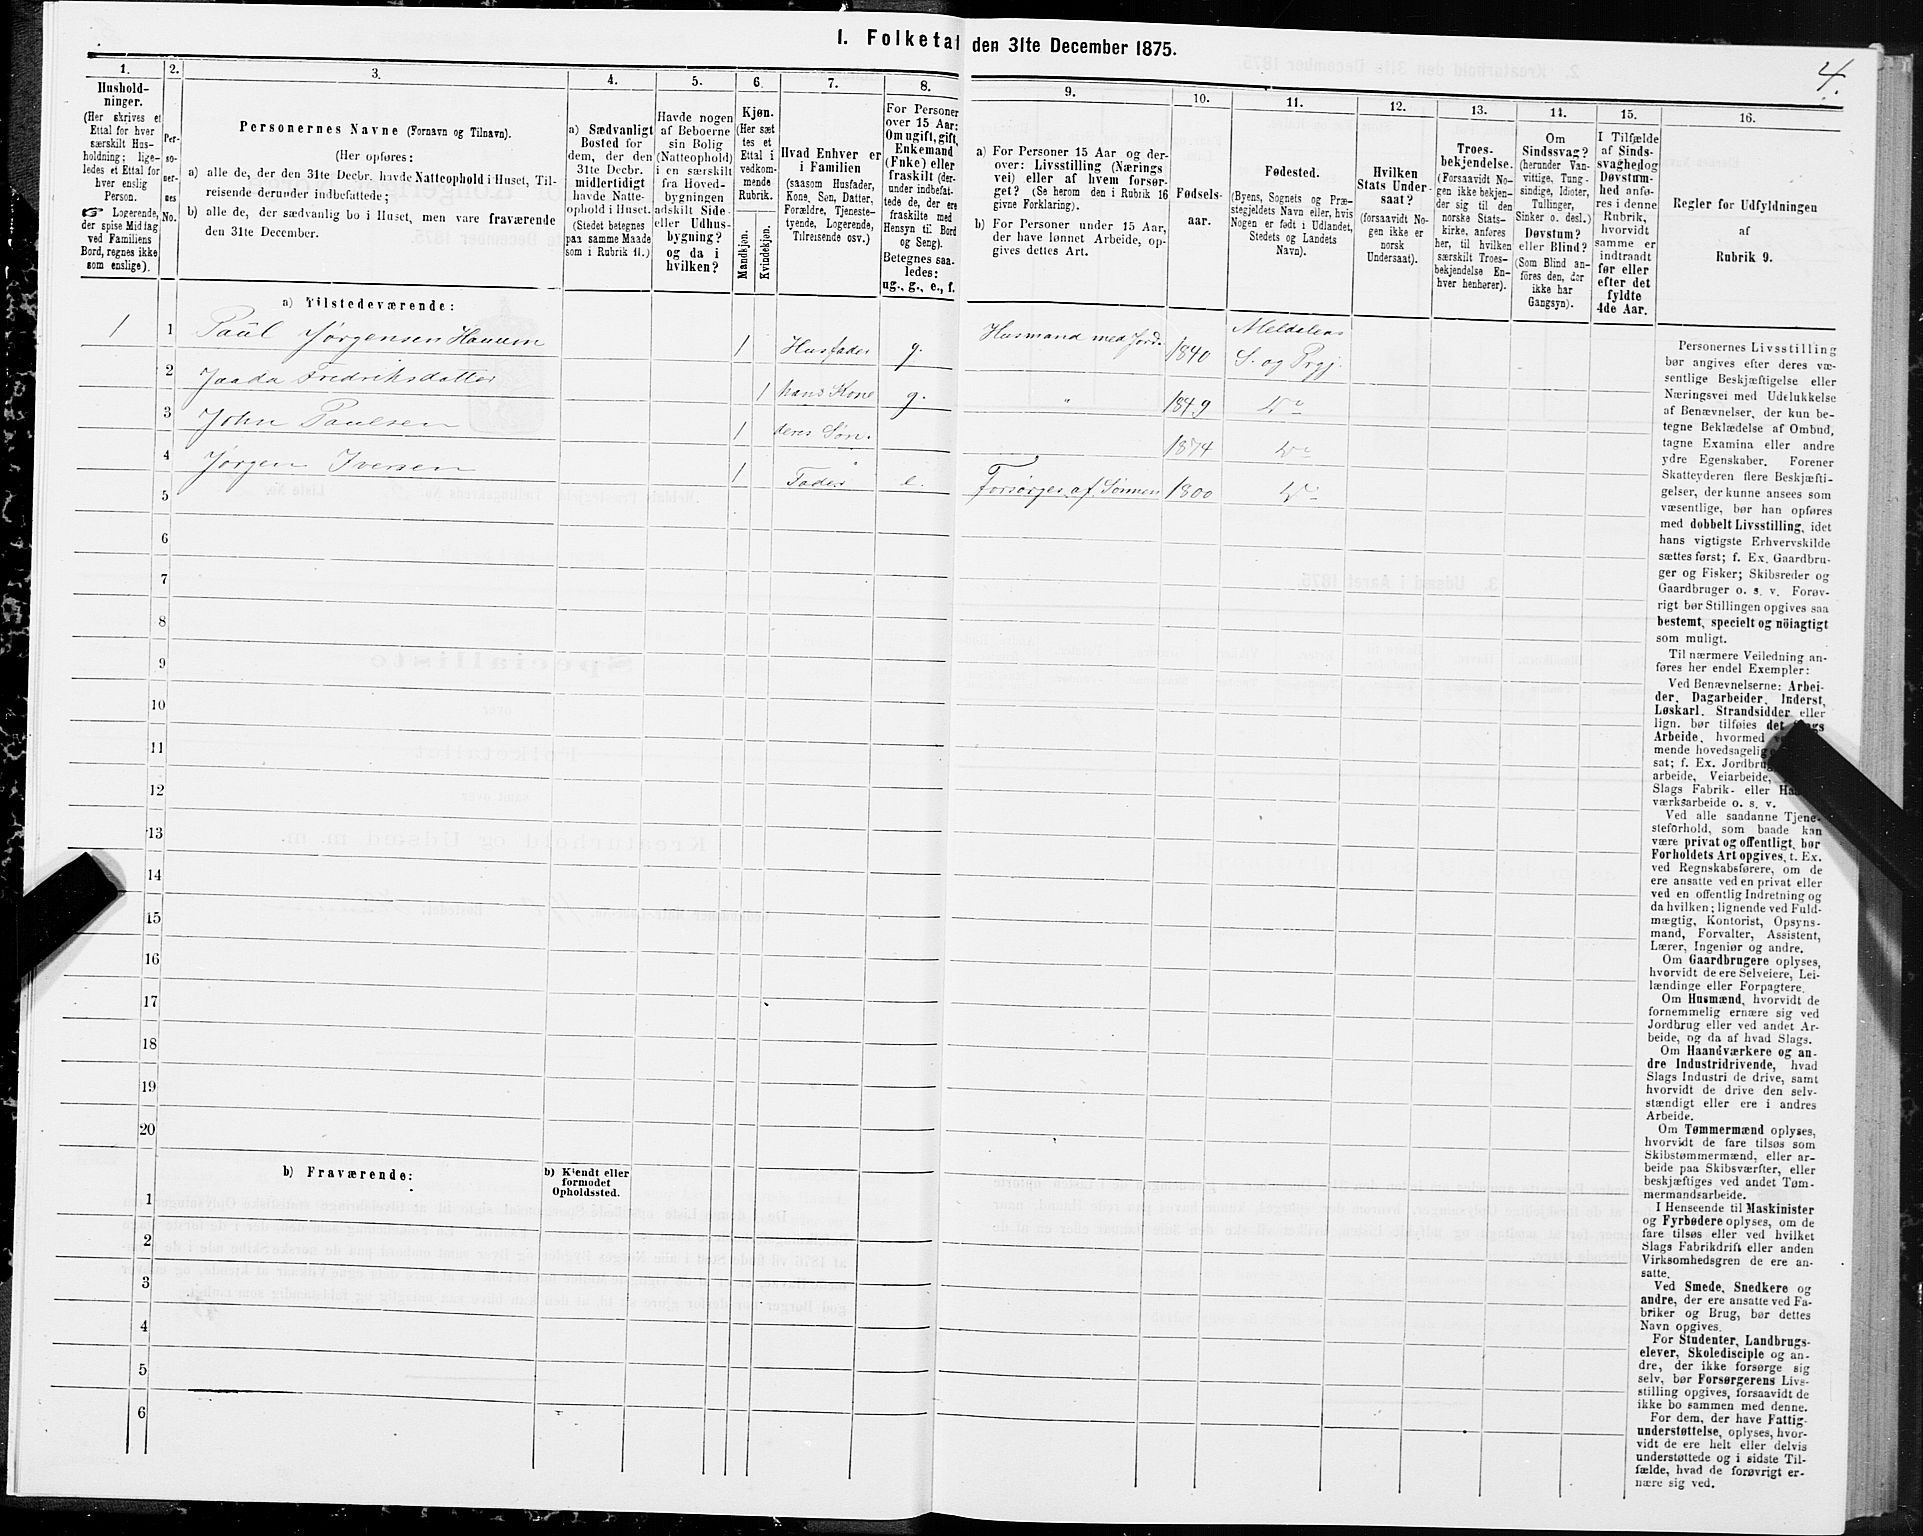 I. Folketal den 31te December 1875.
4.
1.
Hushold-
ninger.
(Her skrives et
Ettal for hver
særskilt Hus-
holdning; lige-
ledes et Ettal for
hver enslig
Person.
☞ Logerende,
der spise Middag
ved Familiens
Bord, regnes ikke
som enslige).
2.
Per-
so-
ner-
nes
No.
3.
Personernes Navne (Fornavn og Tilnavn).
(Her opføres:
a) alle de, der den 31te Decbr. havde Natteophold i Huset, Til-
reisende derunder indbefattede;
b) alle de, der sædvanlig bo i Huset, men vare fraværende
den 31te December.
4.
a) Sædvanligt
Bosted for
dem, der den
31te Decbr.
midlertidigt
havde Natte-
ophold i Huset.
(Stedet betegnes
paa samme Maade
som i Rubrik 11.)
5.
Havde nogen
af Beboerne
sin Bolig
(Natteophold)
i en særskilt
fra Hoved-
bygningen
adskilt Side-
eller Udhus-
bygning?
og da i
hvilken?
6.
Kjøn.
(Her sæt-
tes et
Ettal i
vedkom-
mende
Rubrik.
Mandkjøn.
Kvindekjøn.
7.
Hvad Enhver er
i Familien
(saasom Husfader,
Kone, Søn, Datter,
Forældre, Tjeneste-
tyende, Logerende,
Tilreisende osv.)
8.
For Personer
over 15 Aar:
Om ugift, gift,
Enkemand
(Enke) eller
fraskilt (der-
under indbefat-
tede de, der ere
fraskilte med
Hensyn til Bord
og Seng).
Betegnes saa-
ledes:
ug., g., e., f.
9.
a) For Personer 15 Aar og der-
over: Livsstilling (Nærings
vei) eller af hvem forsør-
get? (Se herom den i Rubrik 16
givne Forklaring).
b) For Personer under 15 Aar,
der have lønnet Arbeide, op-
gives dettes Art.
10.
Fødsels-
aar.
11.
Fødested.
(Byens, Sognets og Præ-
stegjeldets Navn eller, hvis
Nogen er født i Udlandet,
Stedets og Landets
Navn).
12.
Hvilken
Stats Under-
saat?
(forsaavidt No-
gen ikke er
norsk
Undersaat).
13.
Troes-
bekjendelse.
(Forsaavidt No-
gen ikke bekjen-
der sig til den
norske Stats-
kirke, anføres
her, til hvilken
særskilt Troes-
bekjendelse En-
hver henhører).
14.
Om
Sindssvag?
(herunder Van-
vittige, Tung-
sindige, Idioter,
Tullinger,
Sinker o. desl.)
Døvstum?
eller Blind?
(Som Blind an-
føres den, der
ikke har
Gangsyn).
15.
I Tilfælde
af Sinds-
svaghed og
Døvstum-
hed anfø-
res i denne
Rubrik,
hvorvidt
samme er
indtraadt
før eller
efter det
fyldte
4de Aar.
16.
Regler for Udfyldningen
af
Rubrik 9.
a) Tilstedeværende:
1 1 Paul Jørgensen Hauem 1 Husfader g. Husmand med Jord. 1840 Meldalens
S. og Prgj.
2 Jaada Fredriksdatter 1 hans Kone g. " 1849 Do
3 John Paulsen 1 deres Søn. 1874 Do
4 Jørgen Iversen 1 Fader e. Forsørges af Sønnen 1800 Do
5
6
7
8
9
10
11
12
13
14
15
16
17
18
19
20
b) Fraværende:
b) Kjendt eller
formodet
Opholdssted.
1
2
3
4
5
6
Personernes Livsstilling
bør angives efter deres væ-
sentlige Beskjæftigelse eller
Næringsvei med Udelukkelse
af Benævnelser, der kun be-
tegne Beklædelse af Ombud,
tagne Examina eller andre
ydre Egenskaber. Forener
Skatteyderen flere Beskjæfti-
gelser, der kunne ansees som
væsentlige, bør han opføres
med dobbelt Livsstilling, idet
hans vigtigste Erhvervskilde
sættes først; f. Ex. Gaardbru-
ger og Fisker; Skibsreder og
Gaardbruger o. s. v. Forøv-
rigt bør Stillingen opgives saa
bestemt, specielt og nöiagtigt
som muligt.
Til nærmere Veiledning an-
føres her endel Exempler:
Ved Benævnelserne: Arbei-
der, Dagarbeider, Inderst,
Løskarl, Strandsidder eller
lign. bør tilføies det Slags
Arbeide, hvormed
mende hovedsagelig
sat; f. Ex. Jordbrug
arbeide, Veiarbeide,
Slags Fabrik- eller
værksarbeide o. s. v.
Ved alle saadanne Tjene-
steforhold, som baade kan
være privat og offentligt, bør
Forholdets Art opgives, t. Ex.
ved Regnskabsførere, om de
ere ansatte ved en privat eller
ved en offentlig Indretning og
da hvilken; lignende ved Fuld-
mægtig, Kontorist, Opsyns-
mand, Forvalter, Assistent,
Lærer, Ingeniør og andre.
Om Gaardbrugere oplyses,
hvorvidt de ere Selveiere, Lei-
lændinge eller Forpagtere.
Om Husmænd, hvorvidt de
fornemmelig ernære sig ved
Jordbrug eller ved andet Ar-
beide, og da af hvad Slags.
Om Haandværkere og an-
dre Industridrivende, hvad
Slags Industri de drive, samt
hvorvidt de drive den selv-
stændigt eller ere i andres
Arbeide.
Om Tømmermænd oplyses,
hvorvidt de fare tilsøs som
Skibstømmermænd, eller ar-
beide paa Skibsværfter, eller
beskjæftiges ved andet Tøm-
mermandsarbeide.
I Henseende til Maskinister
og Fyrbødere oplyses, om de
fare tilsøs eller ved hvilket
Slags Fabrikdrift eller anden
Virksomhedsgren de ere an-
satte.
Ved Smede, Snedkere og
andre, der ere ansatte ved Fa-
briker og Brug, bør dettes
Navn opgives.
For Studenter, Landbrugs-
elever, Skoledisciple og an-
dre, der ikke forsørge sig
selv, bør Forsørgerens Livs-
stilling opgives, forsaavidt de
ikke bo sammen med denne.
For dem, der have Fattig-
understøttelse, oplyses, hvor-
vidt de ere helt eller delvis
understøttede og i sidste Til-
fælde, hvad de forøvrigt er-
nære sig ved.